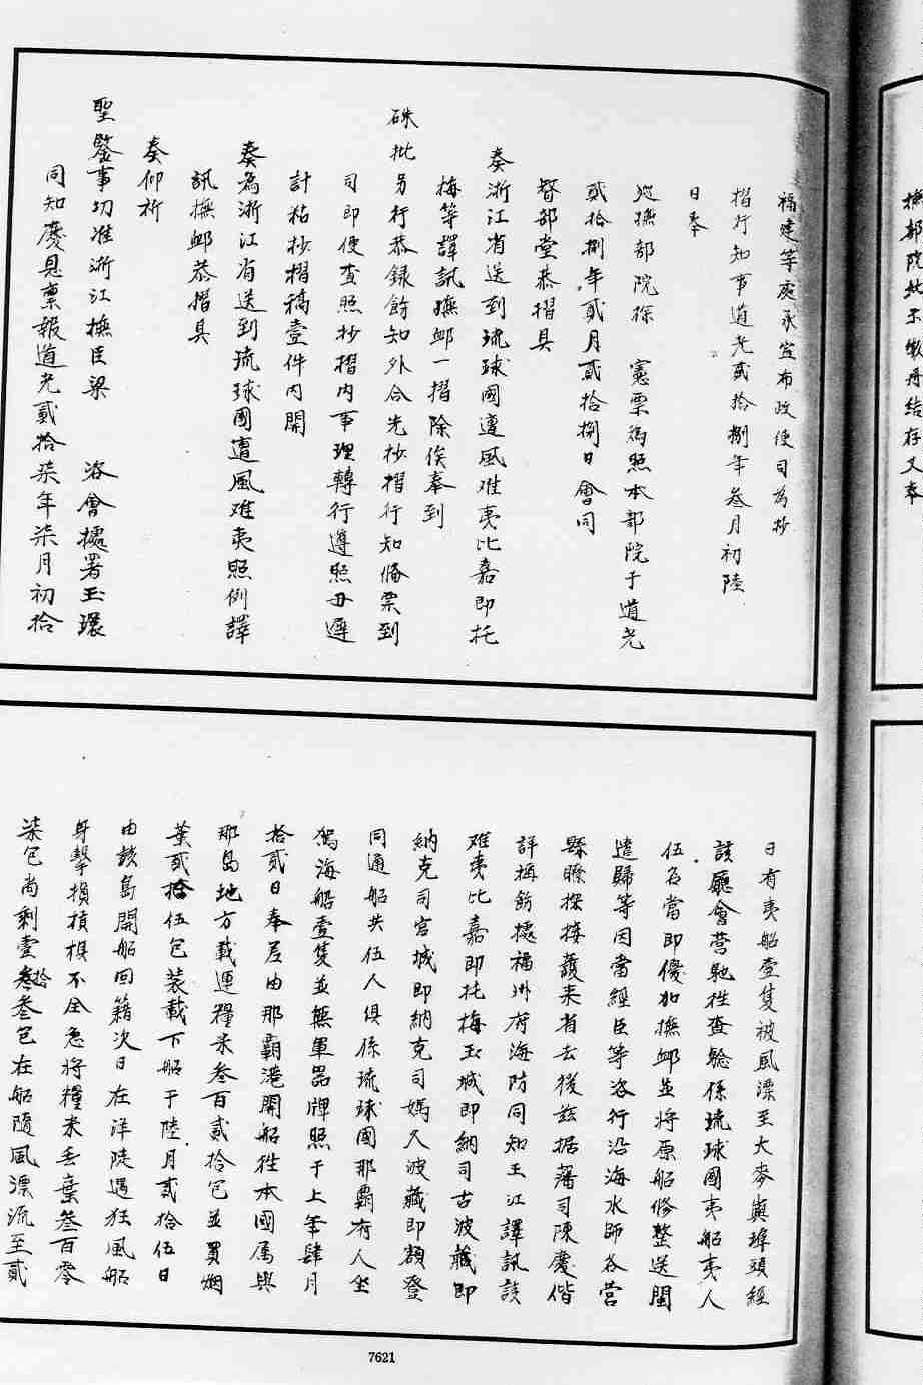 撫部院此不繳再結存又奉
福建等處承宣布政使司為抄
摺行知事道光貳拾捌年叁月初陸
日奉
巡撫部院徐 憲票為照本部院于道光
貳拾捌年貳月貳拾捌日會同
督部堂恭摺具
奏浙江省送到琉球國遭風难夷比嘉即托
梅等譯訊撫卹一摺除俟奉到
硃批另行恭録飭知外合先抄摺行知俻票到
司即便查照抄摺内事理轉行遵照毋遲
計粘抄摺稿壹件内開
奏為浙江省送到琉球國遭風难夷照例譯
訊撫卹恭摺具
奏仰祈
聖鑒事切准浙江撫臣梁 咨會據署玉環
同知慶恩稟報道光貳拾柒年柒月初拾
日有夷船壹隻被風漂至大麥與埠頭經
該廳會营馳徃查騐係琉球國夷船夷人
伍名當即優加撫卹並将原船修整送閩
遣歸等因當經臣等咨行沿海水師各营
縣瞭探接護来省去後兹据藩司陳慶偕
詳稱飭據福州府海防同知王江譯訊該
难夷比嘉即托梅玉城即納司古波藏即
納克司宫城即納克司嫣久波藏即額登
同通船共伍人俱係琉球國那霸府人坐
駕海船壹隻並無軍器牌照于上年肆月
拾贰日奉差由那霸港開船徃本國属與
那岛地方載運糧米叁百贰拾包並買烟
葉贰拾伍包装載下船于陸月贰拾伍日
由該島開船回籍次日在洋陡遇狂風船
身擊損槓椇不全急将糧米丢棄叁百零
柒包尚剩壹拾叁包在船隨風漂流至贰
7621